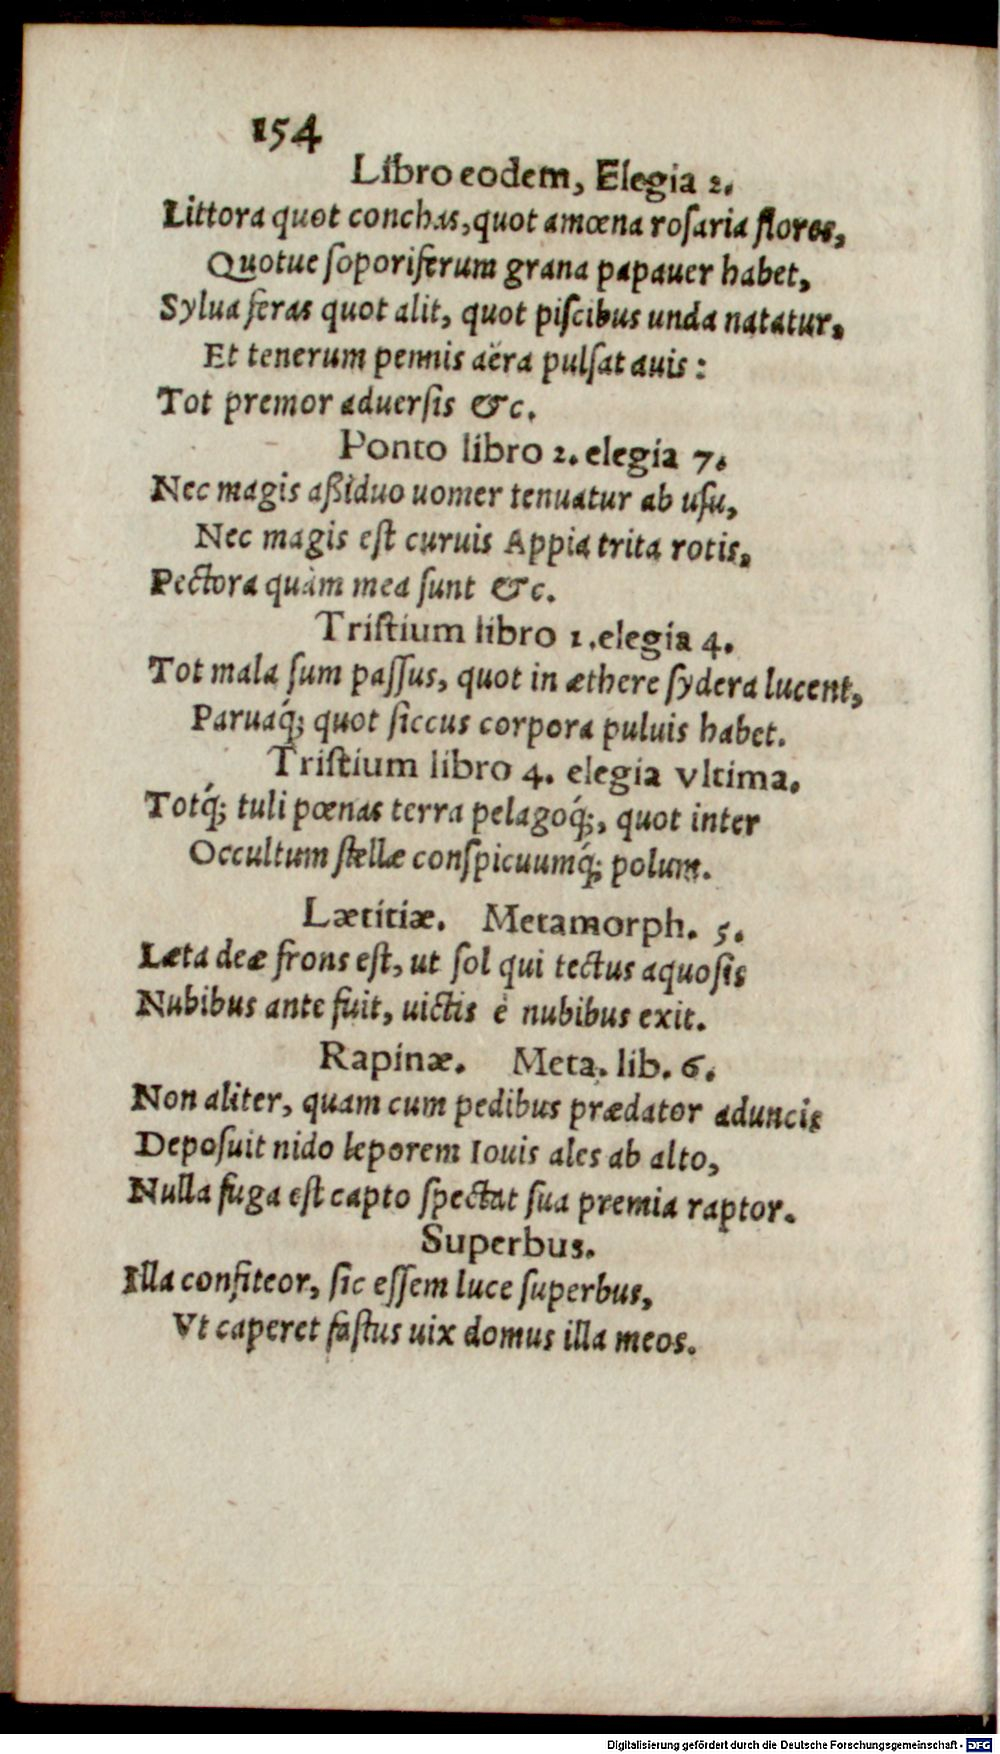 154
Libro eodem, Elegia 2.
Littora quot conchas, quot amœna roſaria flores,
Quotue ſoporiferum grana papauer habet,
Sylua feras quot alit, quot piſcibus unda natatur,
Et tenerum pennis aëra pulſat auis:
Tot premor aduerſis &c.
Ponto libro 2. elegia 7.
Nec magis aßiduo uomer tenuatur ab uſu,
Nec magis eſt curuis Appia trita rotis,
Pectora quàm mea ſunt &c.
Triſtium libro 1. elegia 4.
Tot mala ſum paſſus, quot in æthere ſydera lucent,
Paruaq́; quot ſiccus corpora puluis habet.
Triſtium libro 4. elegia vltima.
Totq́; tuli pœnas terra pelagoq́;, quot inter
Occultum ſtellæ conſpicuumq́; polum.
Lætitiæ. Metamorph. 5.
Læta deæ frons eſt, ut ſol qui tectus aquoſis
Nubibus ante fuit, uictis è nubibus exit.
Rapinæ. Meta. lib. 6.
Non aliter, quam cum pedibus prædator aduncis
Depoſuit nido leporem Iouis ales ab alto,
Nulla fuga eſt capto ſpectat ſua premia raptor.
Superbus.
Illa confiteor, ſic eſſem luce ſuperbus,
Vt caperet faſtus uix domus illa meos.
Digitalisierung gefördert durch die Deutsche Forschungsgemeinschaft - DFG